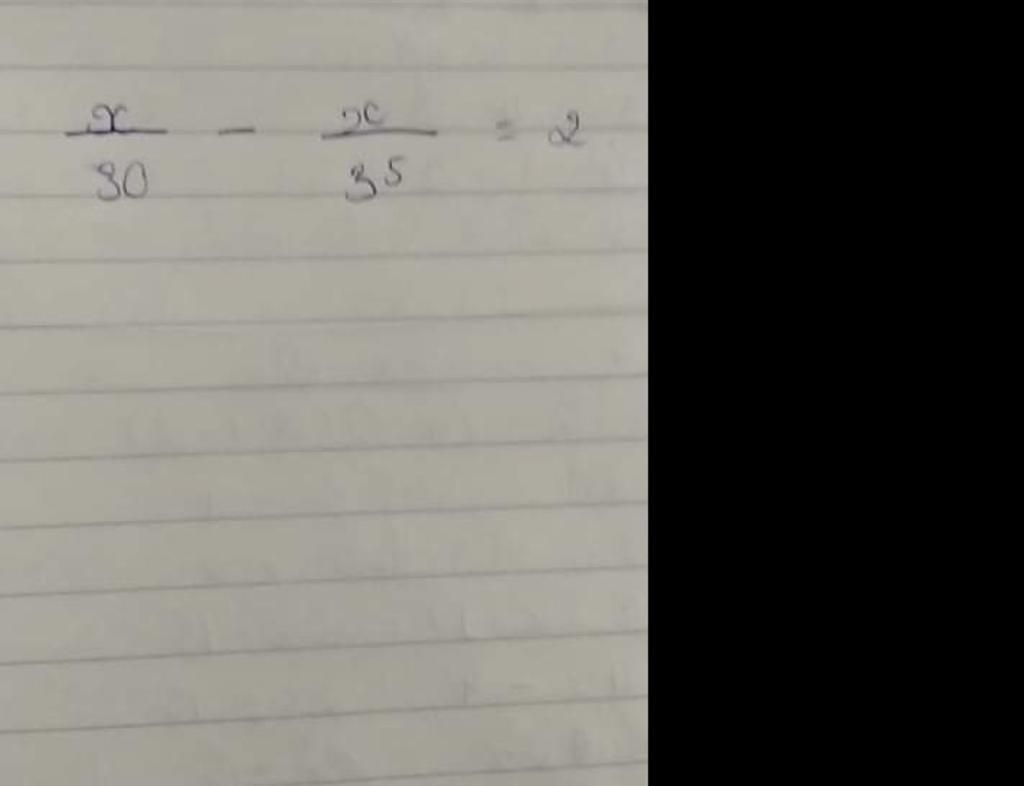 x/30 - x/35 = 2